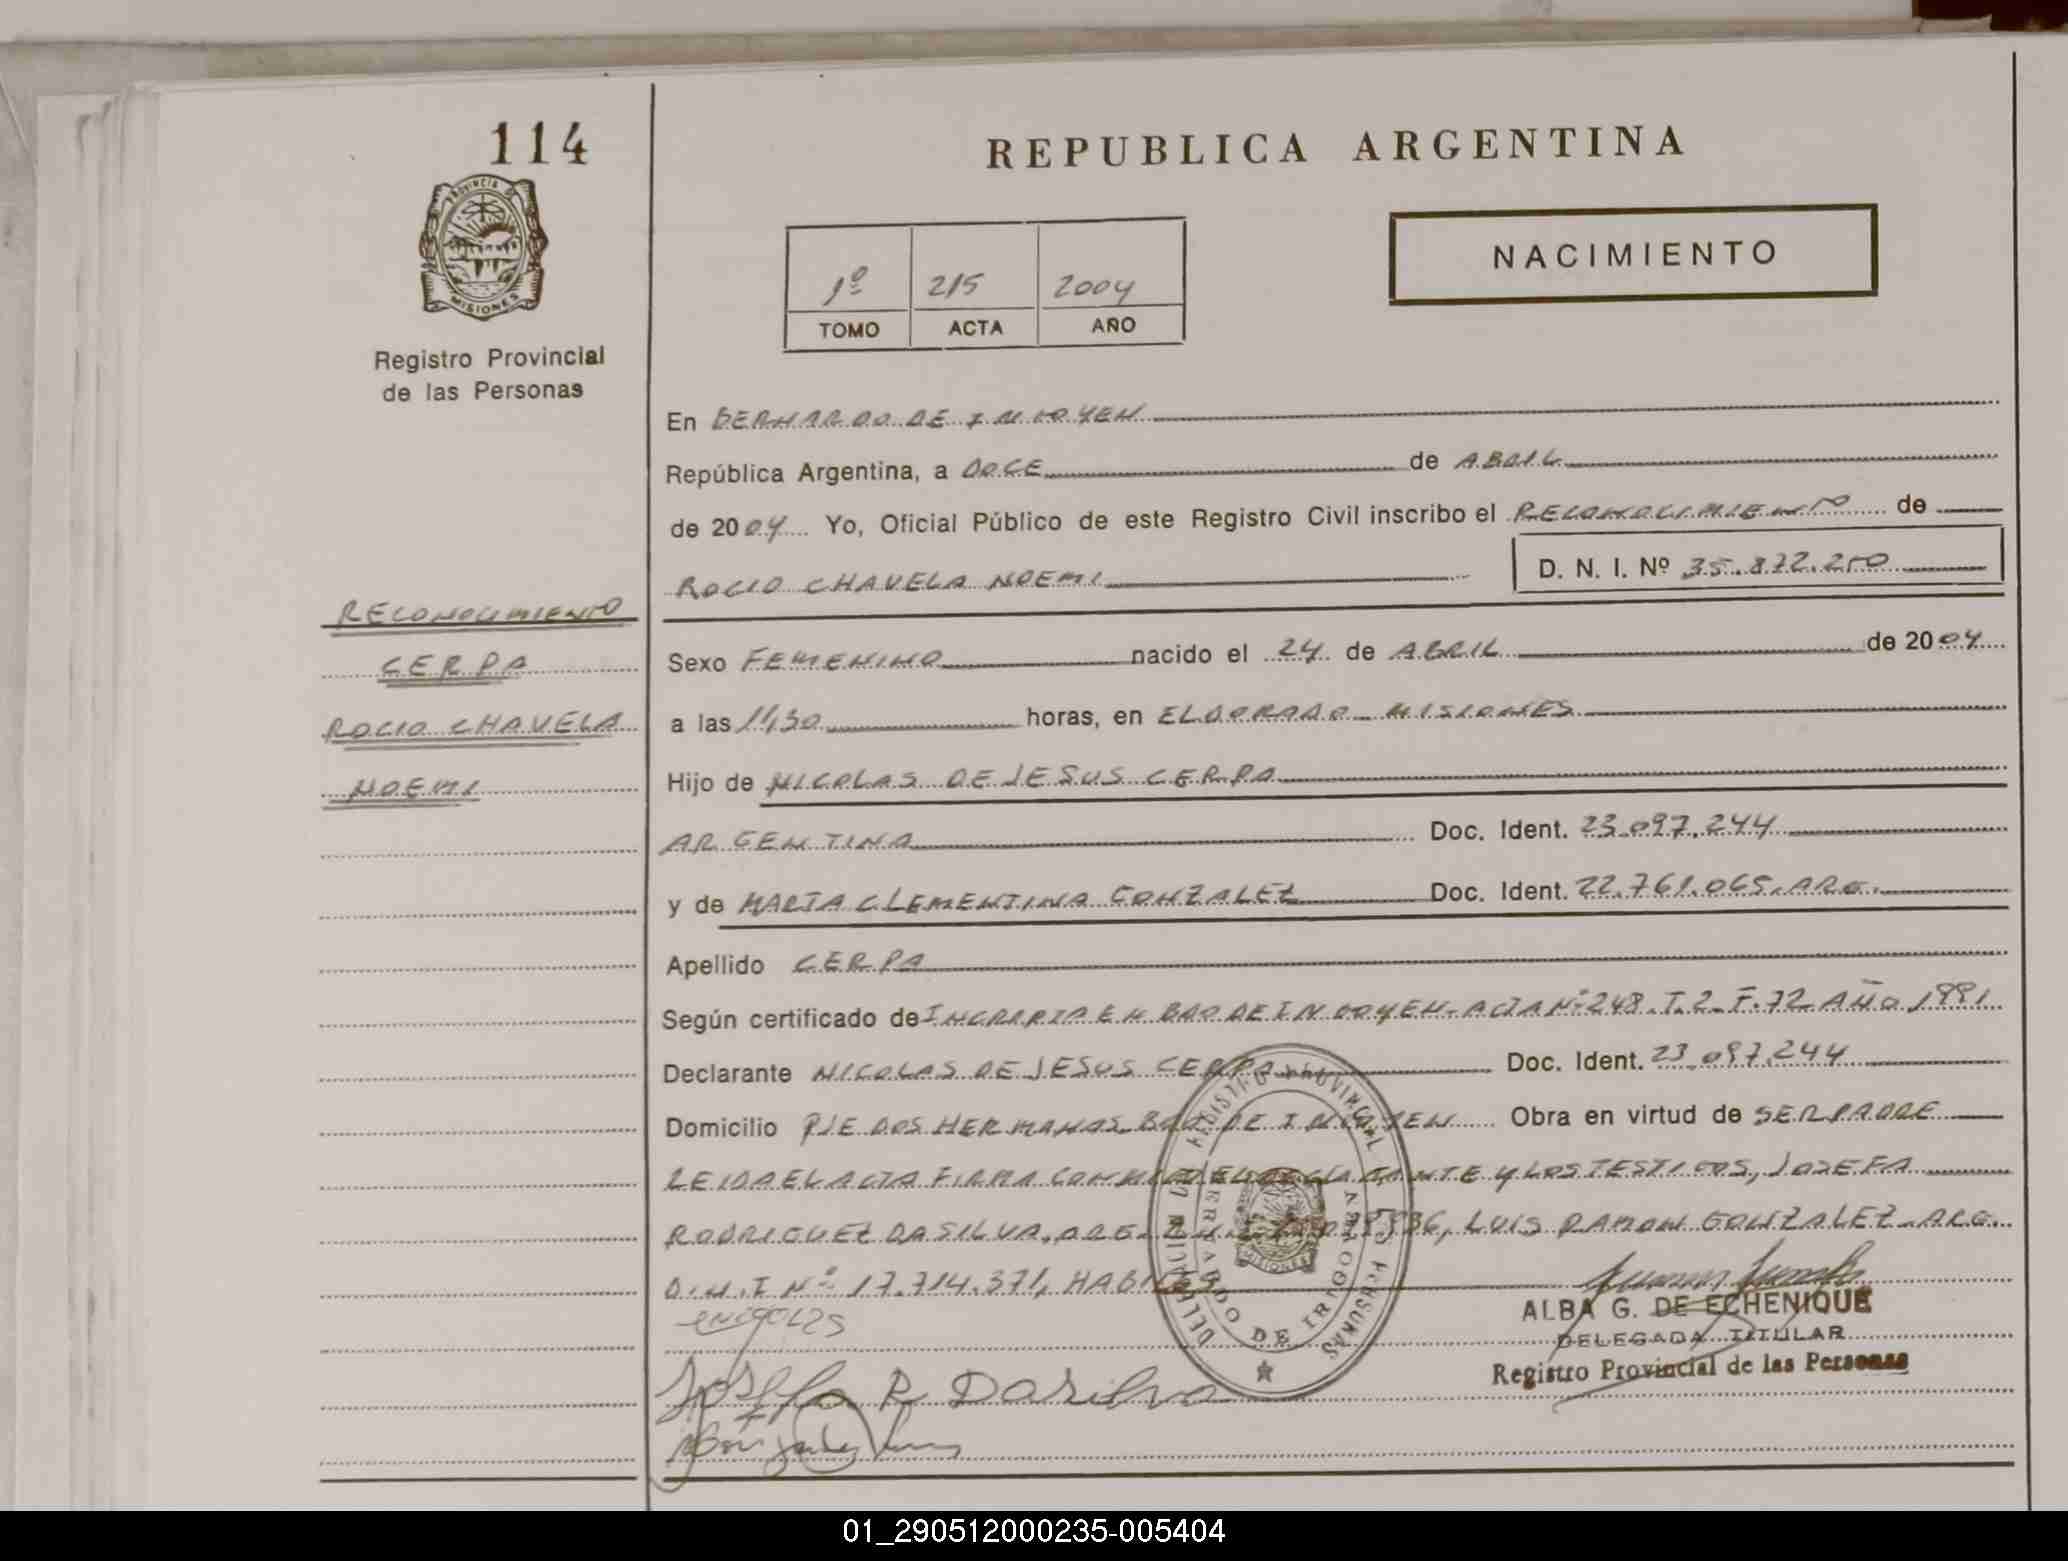 114
REPUBLICA ARGENTINA
PROVINCIA DE
MISIONES
Registro Provincial
de las Personas
1º 215 2004
TOMO ACTA AÑO
NACIMIENTO
En BERNARDO DE IRIGOYEN
República Argentina, a DOCE de ABRIL
de 2004 Yo, Oficial Público de este Registro Civil inscribo el RECONOCIMIENTO de
ROCIO CHAVELA NOEMI D. N. I. Nº 35.872.250
RECONOCIMIENTO
CERPA
ROCIO CHAVELA
NOEMI
Sexo FEMENINO nacido el 24 de ABRIL de 2004
a las 11,30 horas, en ELDORADO MISIONES
Hijo de NICOLAS DE JESUS CERPA
ARGENTINA Doc. Ident. 23.097.244
y de MARIA CLEMENTINA GONZALEZ Doc. Ident. 22.761.065. ARG.
Apellido CERPA
Según certificado de EN BDO DE IRIGOYEN - ACTA Nº 248. T. 2 - F. 72 AÑO 1991
Declarante NICOLAS DE JESUS CERPA Doc. Ident. 23.097.244
Domicilio PJE DOS HERMANAS BDO DE IRIGOYEN Obra en virtud de SER PADRE
LEIDA EL ACTA FIRMA CONMIGO EL DECLARANTE Y LOS TESTIGOS, JOSEFA
RODRIGUEZ DA SILVA, ARG. LUIS RAMON GONZALEZ - ARG.
D.N.I Nº 17.714.371, HABILES
ALBA G. DE ECHENIQUE
DELEGADA TITULAR
Registro Provincial de las Personas
REGISTRO PROVINCIAL DE LAS PERSONAS
DELEGACION
BERNARDO DE IRIGOYEN
MISIONES
Josefa R Da Silva
01_290512000235-005404